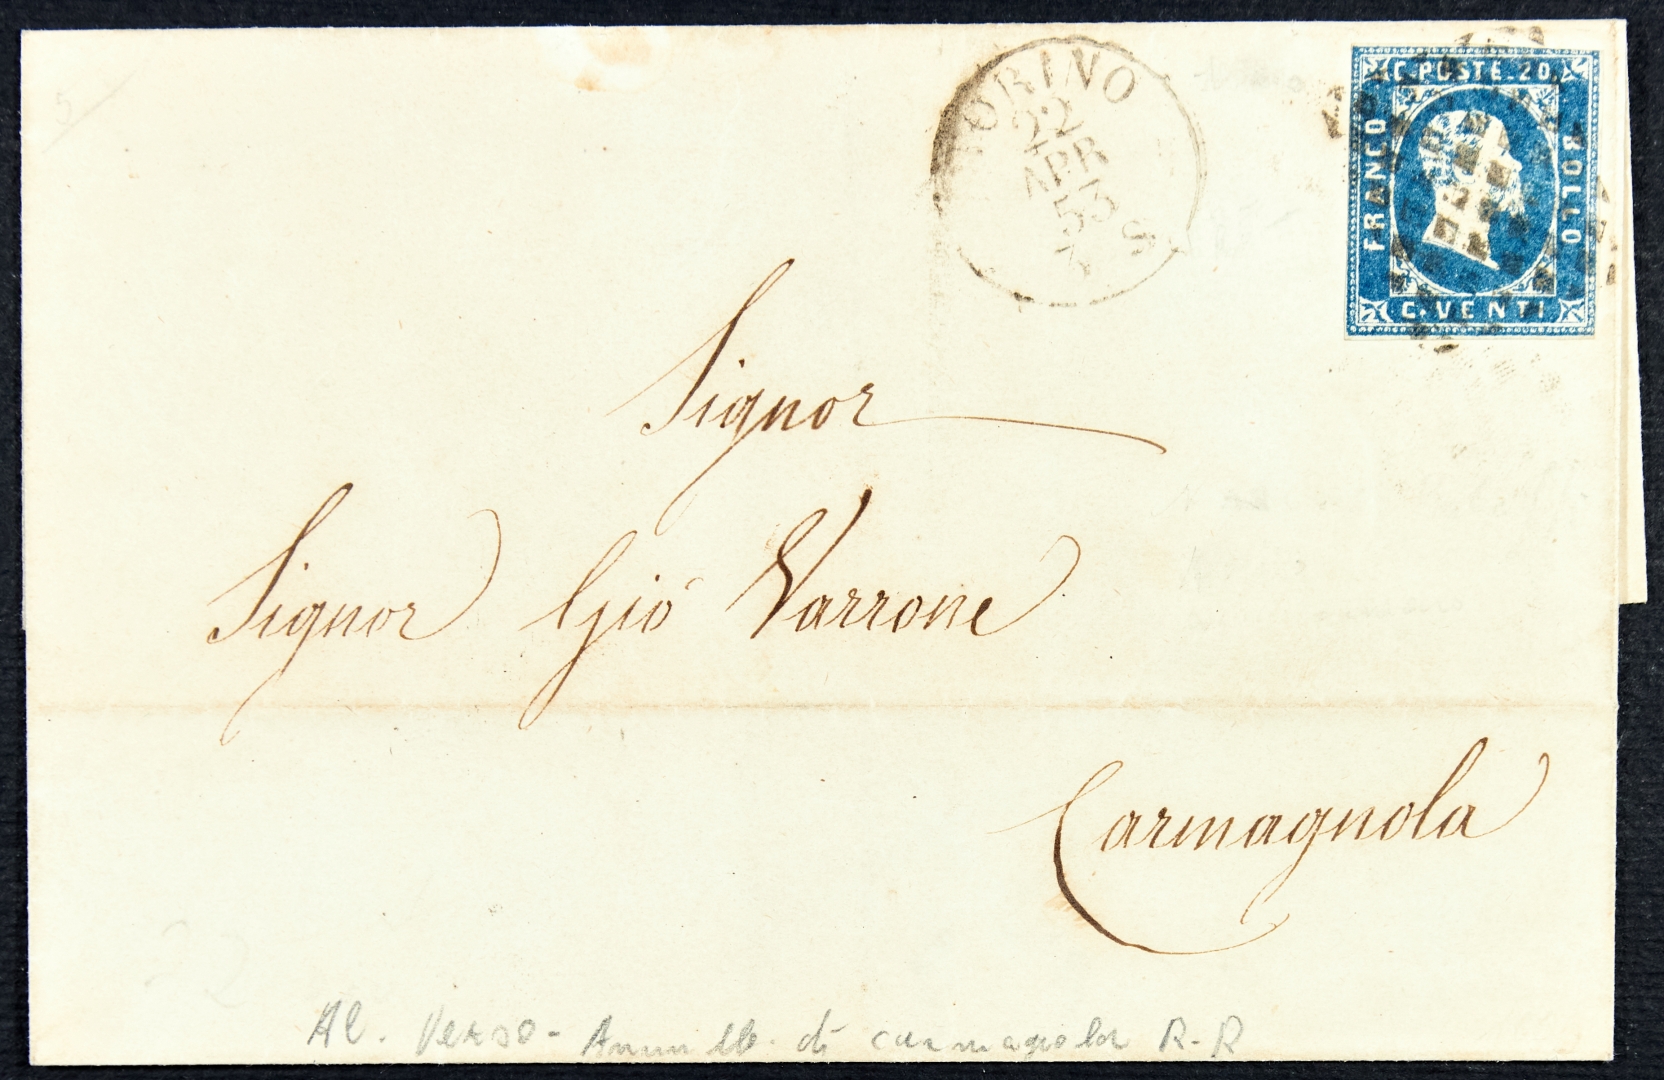 5
TORINO
22
APR
53
S
C. POSTE. 20.
FRANCO
BOLLO
C. VENTI
Signor
Signor Gio Varrone
Carmagnola
22
Al. Verso - Annull. di carmagnola R-R